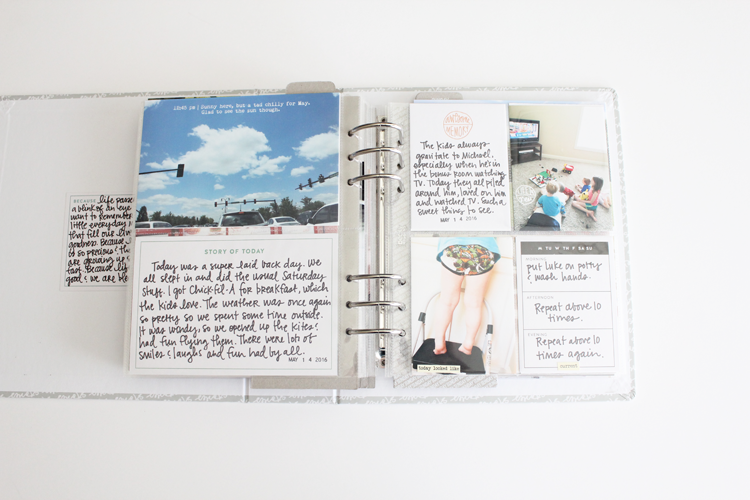 12:49 pm | Sunny here, but a tad chilly for May.
Glad to see the sun though.
BECAUSE life passes
a blink of an eye
want to remember
little everyday
that fill our
goodness. Because
so precious
are growing up
fast. Because
good & we are
STORY OF TODAY
Today was a super laid back day. We
all slept in and did the usual Saturday
stuff. I got Chick-fil-A for breakfast, which
the kids love. The weather was once again
so pretty so we spent some time outside.
It was windy, so we opened up the kites &
had fun flying them. There were lots of
smiles & laughs and fun had by all.
MAY 14 2016
AWESOME
MEMORY
The kids always
gravitate to Michael,
especially when he's in
the bonus room watching
TV. Today they all piled
around him, loved on him
and watched TV. Such a
sweet thing to see.
MAY 14 2016
today looked like
M TU W TH F SA SU
MORNING
put Luke on potty
& wash hands.
AFTERNOON
Repeat above 10
times.
EVENING
Repeat above 10
times again.